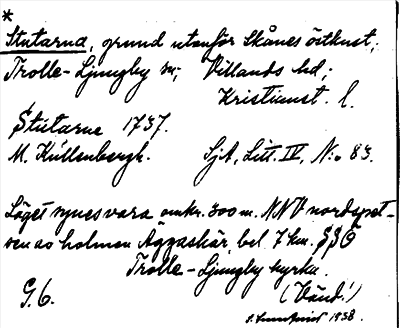 *
Stutarna, grund utanför Skånes östkust;
Trolle-Ljungby sn; Villands hd;
Kristianst. l.
Stutarne 1737.
M. Kúllenbergh. SjA, Litt. IV, N:o 83.
Läget synes vara omkr. 300 m. NNV nordspet-
sen av holmen Äggaskär, bel. 7 km. SSO
Trolle-Ljungby kyrka.
G. 6. (Vänd!)
1938